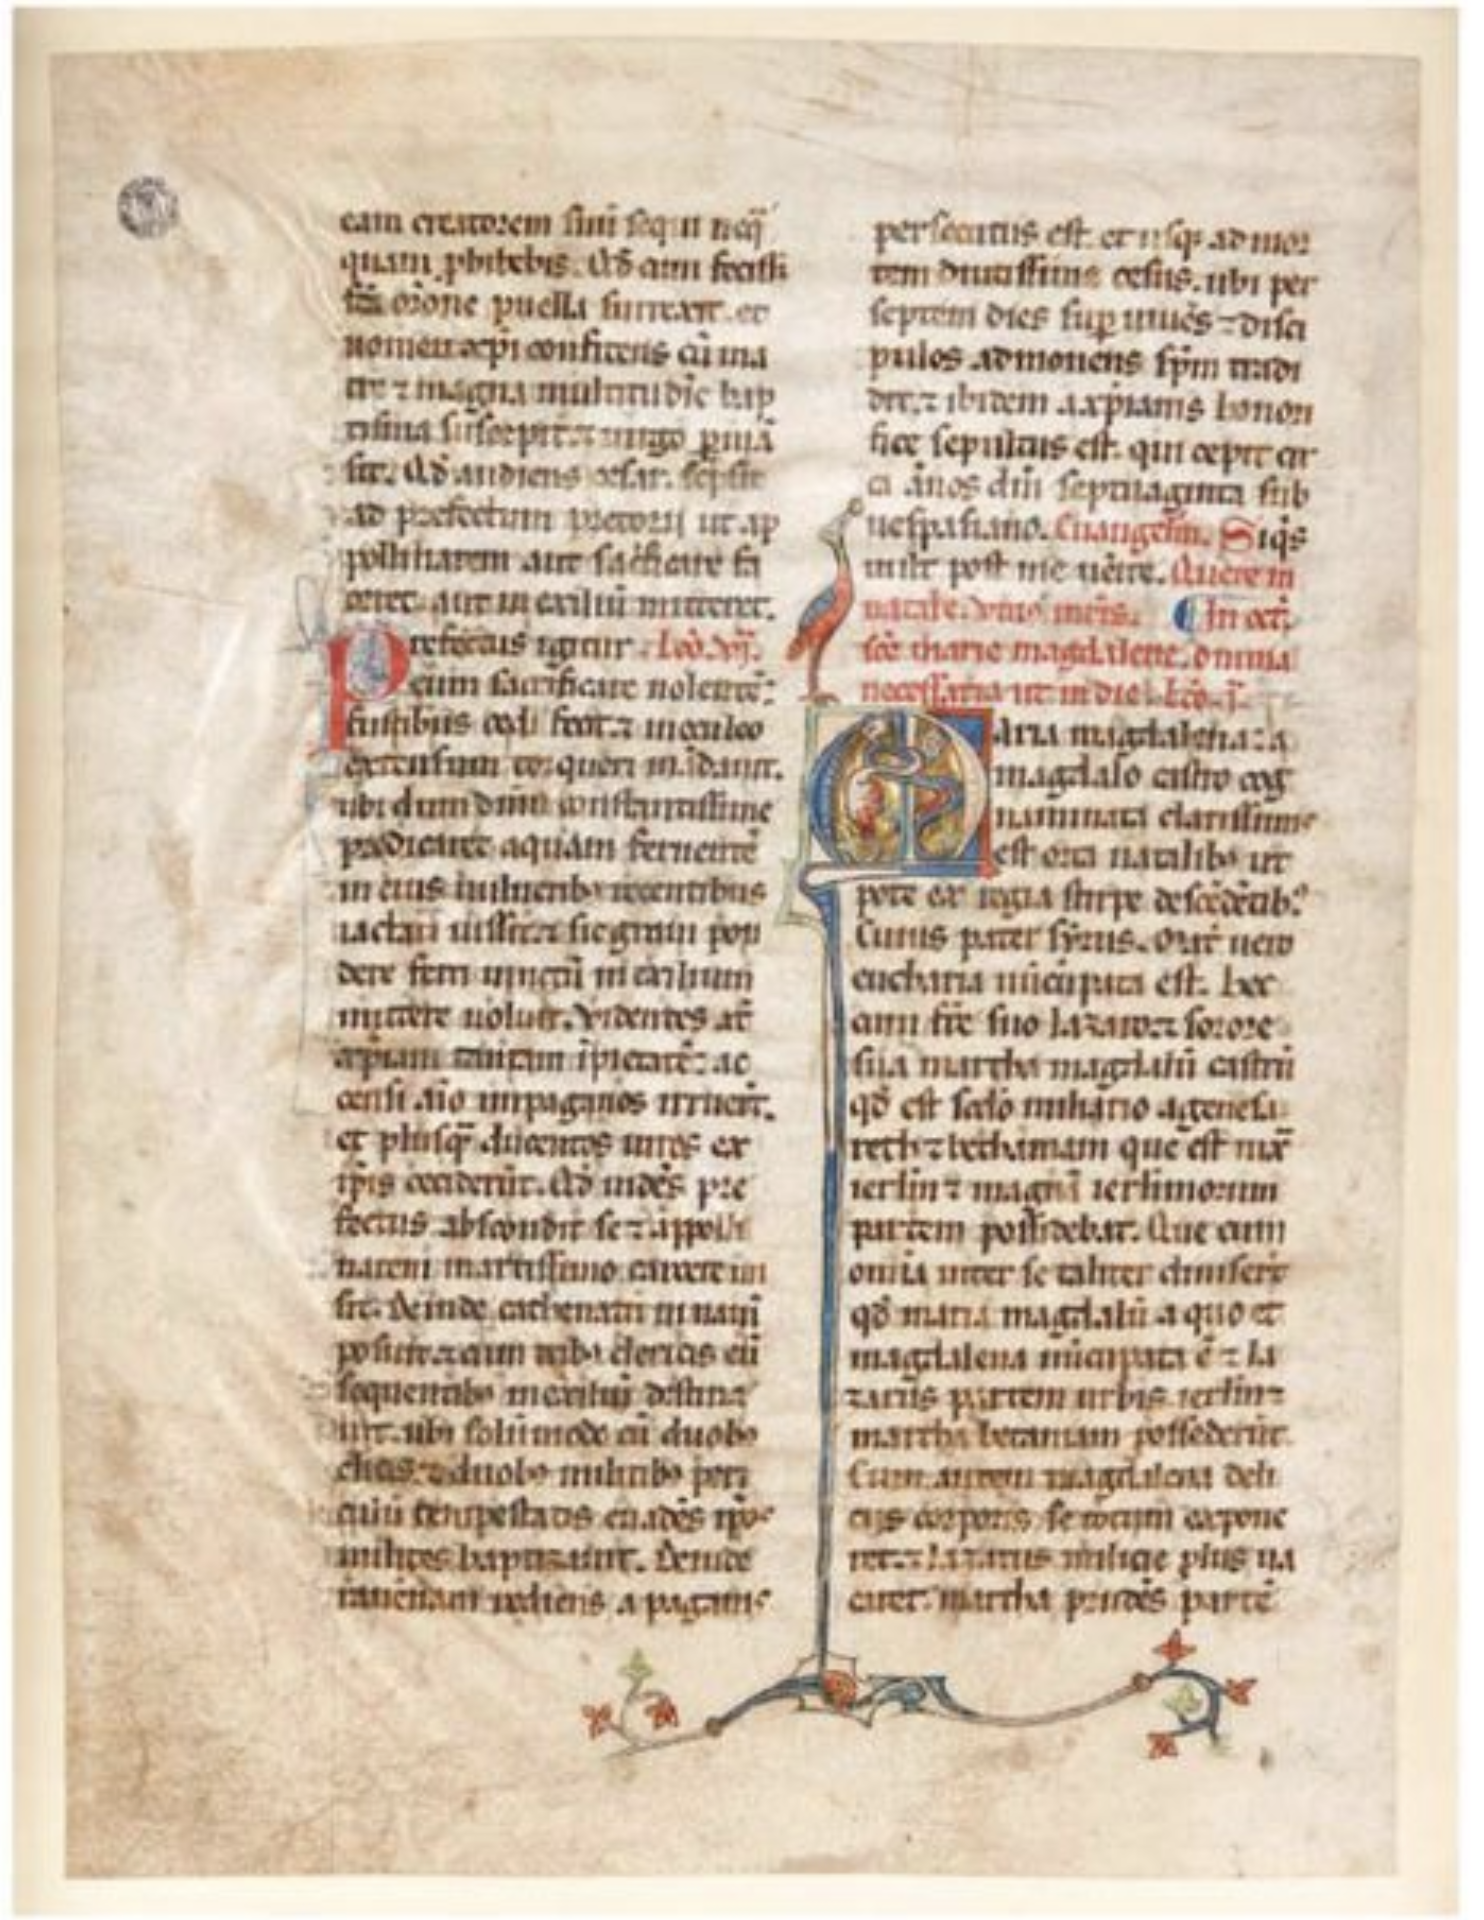 eam creatorem suũ sequi neq̃
quam ꝓhibebis. Qd̃ cum fecisset
fc̃a or̃one puella surrexit. et
nomen xp̃i confitens cũ ma
tre ⁊ magna multitudĩe bap
tisma suscepit. ⁊ uirgo ꝑmã
sit. Qd̃ audiens cesar. scͥpsit
ad prefectum pretorij ut ap
pollinarem aut sacͥficare fa
ceret. aut in exiliũ mitteret.
Prefectus igitur Lcõ. vij.
cum sacrificare nolentẽ:
fustibus cedi fecit. ⁊ in eculeo
extensum torqueri mãdauit.
ubi dum dñm constantissime
predicaret aquam feruentẽ
in eius uulneribꝰ recentibus
iactari iussit. ⁊ sic graui pon
dere ferri uinctũ in exilium
mittere uoluit. Videntes aũt
xp̃iani tantam ĩpietatẽ: ac
censi aĩo in paganos irruerũt.
et plusq̃ ducentos uiros ex
ip̃is occiderũt. Qd̃ uidẽs pre
fectus abscondit se ⁊ appolli
narem in artissimo carcere in
sit. Deinde cathenatũ in naui
posuit. ⁊ cum tribꝰ clericis eũ
sequentibꝰ in exiliũ destina
uit. ubi solũmodo cũ duobꝰ
cl̃icis. ⁊ duobꝰ militibꝰ peri
culũ tempestatis euadẽs ip̃os
milites baptizauit. Deinde
rauẽnam rediens a paganis
persecutus est. et usq; ad mor
tem diutissime cesus. ubi per
septem dies suꝑuiuẽs ⁊ disci
pulos admonens sp̃m tradi
dit. ⁊ ibidem a xp̃ianis honori
fice sepultus est. qui cepit cir
ca ãnos dñi septuaginta sub
uespasiano. Euangeliũ. Siqͥs
uult post me uẽire. Quere in
natale. vnius mr̃is. ¶In oct̃.
sc̃e marie magdalene. omnia
necessaria ut in die. Lcõ. j.
Maria magdalena: a
magdalo castro cog
nominata clarissimis
est orta natalibꝰ ut
pote ex regia stirpe descẽdẽtibꝰ
Cuius pater syrus. mat̃ uero
eucharia nũcupata est. hec
cum fr̃e suo lazaro ⁊ sorore
sua martha magdalũ castrũ
qd̃ est scd̃o miliario a genesa
reth ⁊ bethaniam que est iux̃
ierl̃m ⁊ magnã ierl̃imorum
partem possidebat. Que cum
omnia inter se taliter diuiserũt
qd̃ maria magdalũ a quo et
magdalena nũcupata ẽ ⁊ la
zarus partem urbis ierl̃m ⁊
martha betaniam possederũt.
Cum autem magdalena deli
cijs corporis se totam expone
ret. ⁊ lazarus milicie plus ua
caret. martha prudẽs partẽ